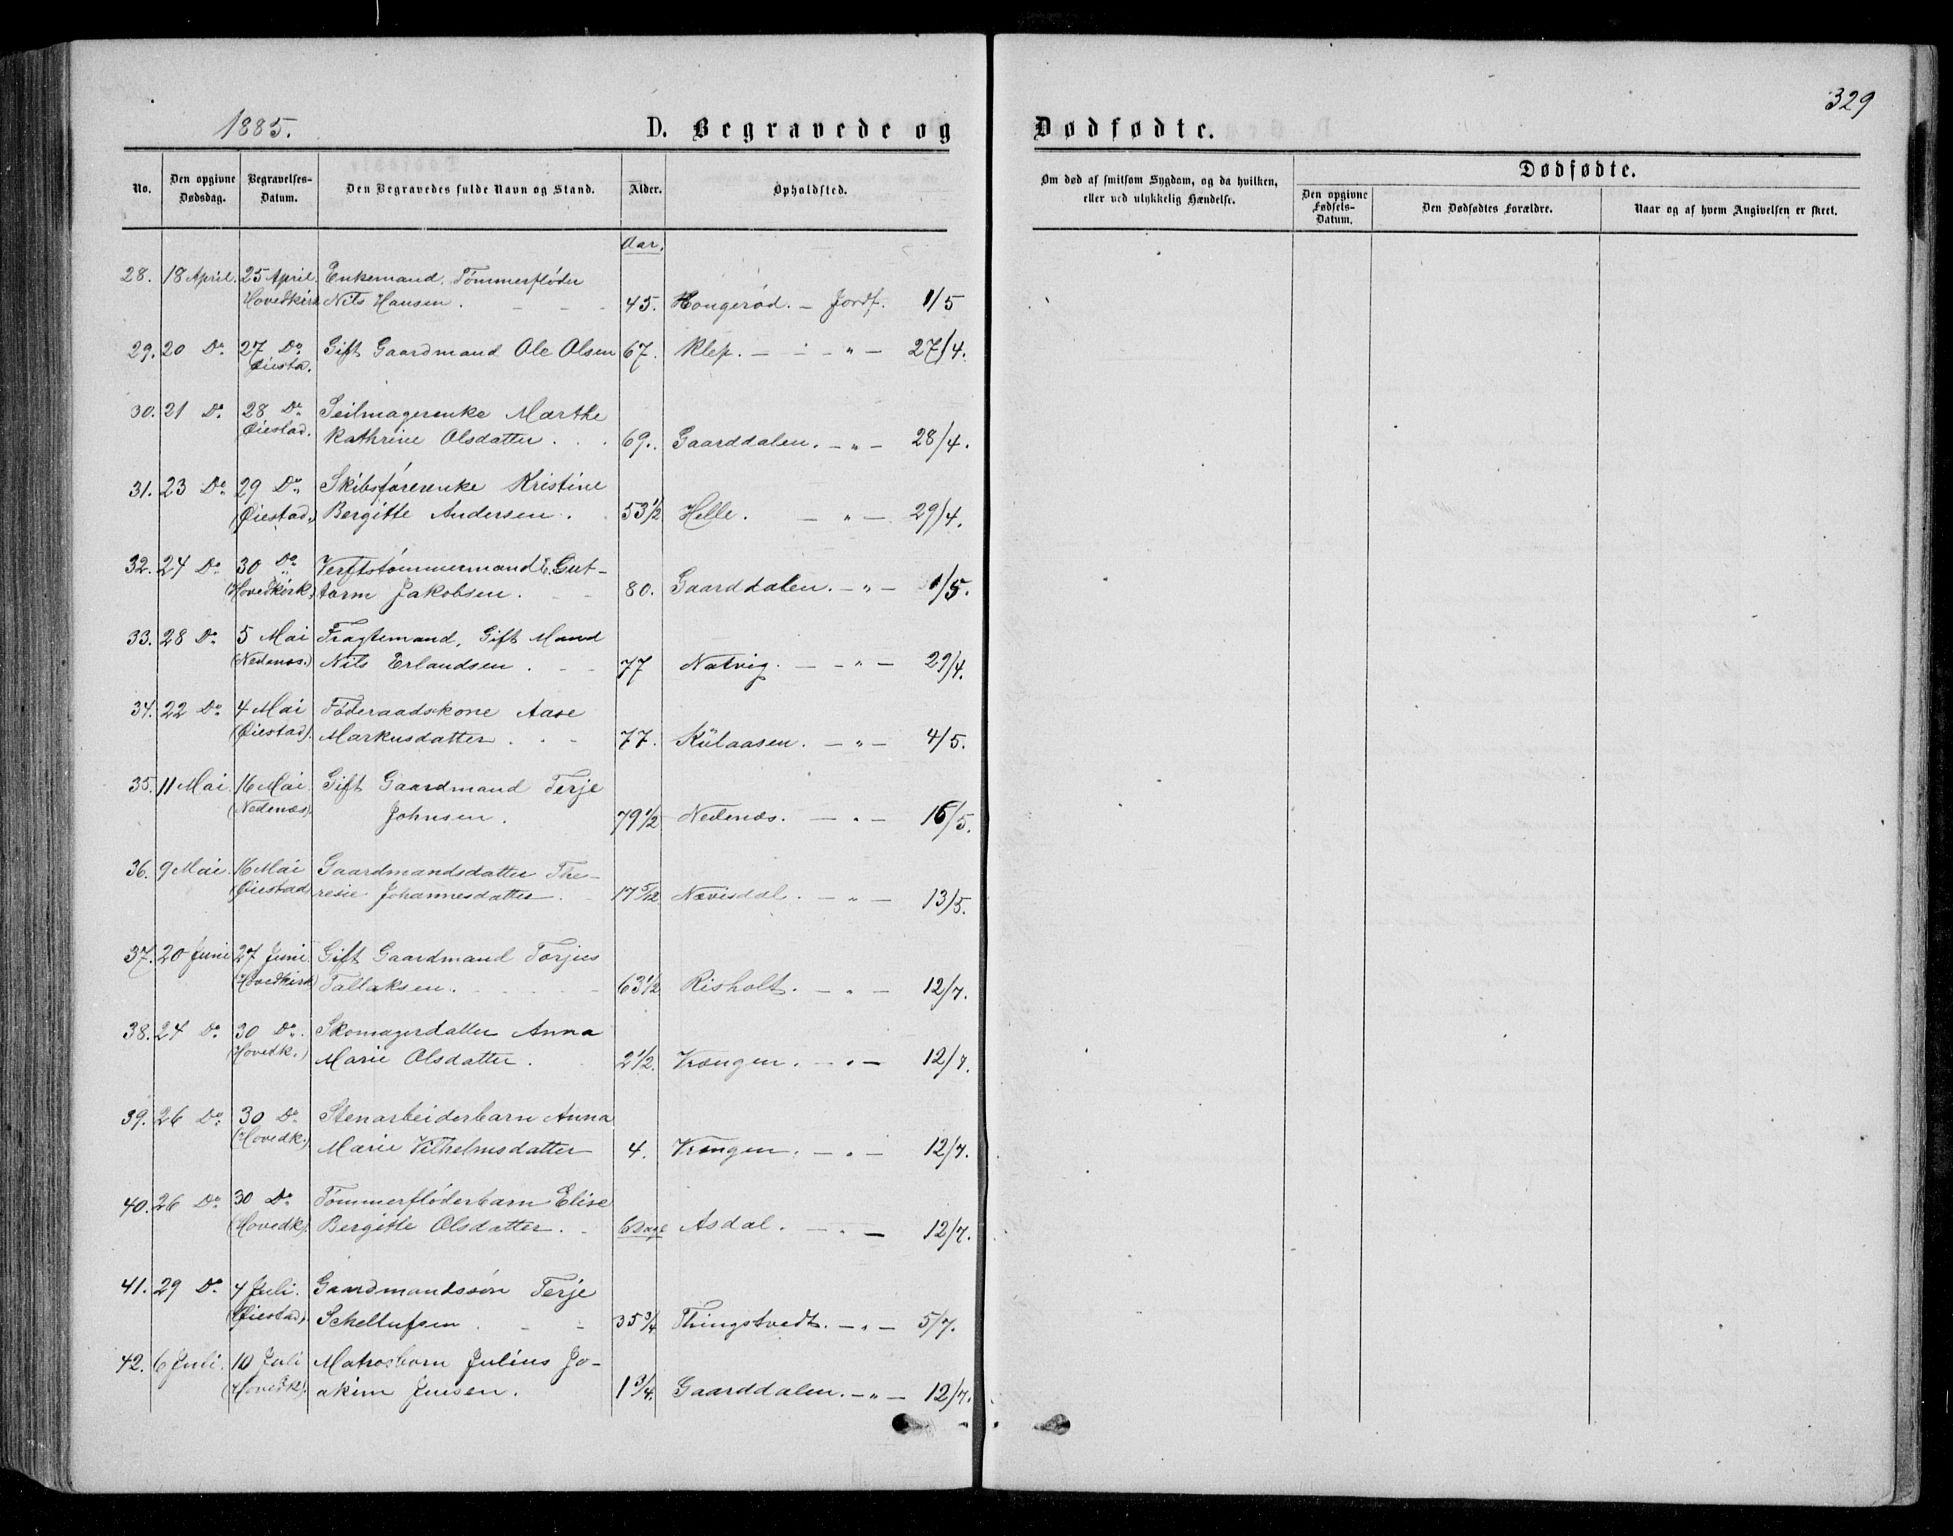 329
1885.
D. Begravede og Dødfødte.
No.
Den opgivne Dødsdag.
Begravelses-Datum.
Den Begravedes fulde Navn og Stand.
Alder.
Opholdsted.
Om død af smitsom Sygdom, og da hvilken, eller ved ulykkelig Hændelse.
Dødfødte.
Den opgivne Fødsels-Datum.
Den Dødfødtes Forældre.
Naar og af hvem Angivelsen er skeet.
Aar.
28. 18 April. 25 April. Enkemand, Tømmerfløder
Hovedkirk Nils Hansen. 45. Hougerød. — Jordf. 1/5
29. 20 Do 27 Do Gift Gaardmand Ole Olsen 67. Klep. — " — 27/4.
Øiesta.
30. 21 Do 28 Do Seilmagerenke Marthe
Øiestad. Kathrine Olsdatter. 69. Gaarddalen. — " — 28/4.
31. 23 Do 29 Do Skibsførerenke Kristine
(Øiestad.) Bergitte Andersen. 53 1/2 Helle. — " — 29/4.
32. 24 Do 30 Do Verftstømmermand E. Gut-
(Hovedkirk.) torm Jakobsen. 80. Gaarddalen. — " — 1/5.
33. 28 Do 5 Mai Fragtemand, Gift Mand
(Nedenæs.) Nils Erlandsen. 77 Natvig. — " — 29/4.
34. 22 Do 4 Mai Føderaadskone Aase
(Øiestad). Markusdatter. 77. Külaasen. — " — 4/5.
35. 11 Mai 16 Mai Gift Gaardmand Terje
(Nedenæs). Johnsen. 79 1/2 Nedenæs. — " — 16/5.
36. 9 Mai. 16 Mai Gaardmandsdatter The-
(Øiestad resie Johannesdatter 17 5/12 Nævisdal. — " — 13/5.
37. 20 Juni 27 Juni. Gift Gaardmand Torjus
(Hovedkirk) Tallaksen. 63 1/2 Risholt. — " — 12/7.
38. 24 Do 30 Do Skomagerdatter Anna
(Hovedk.) Marie Olsdatter. 2 1/2. Vrængen. — " — 12/7.
39. 26 Do 30 Do Stenarbeiderbarn Anna
(Hovedk.) Marie Vilhelmsdatter 4. Vrængen. — " — 12/7.
40. 26 Do 30 Do Tømmerfløderbarn Elise
(Hovedk). Bergitte Olsdatter. 6 Dage Asdal. — " — 12/7.
41. 29 Do 4 Juli. Gaardmandssøn Terje
(Øiestad) Schellufsen 35 3/4 Thingstvedt. — " — 5/7.
42. 6 Juli. 10 Juli Matrosbarn Julius Jo-
(Hovedk). akim Jensen. 1 3/4. Gaarddalen. — " — 12/7.